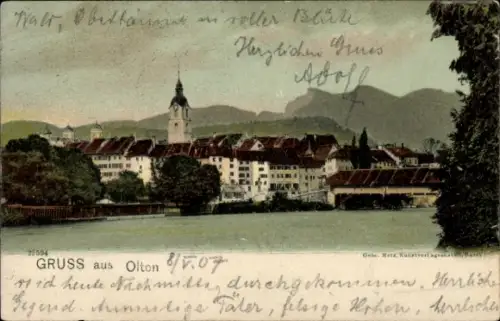 Wald, Obstbäume in voller Blüte
Herzlichen Gruss
Adolf
GRUSS aus Olten 8/V.07
Gebr. Metz, Kunstverlagsanstalt, Basel
sind heute Nachmittag durchgekommen. Herrliche
Gegend. Anmutige Täler, felsige Höhen, herrliches